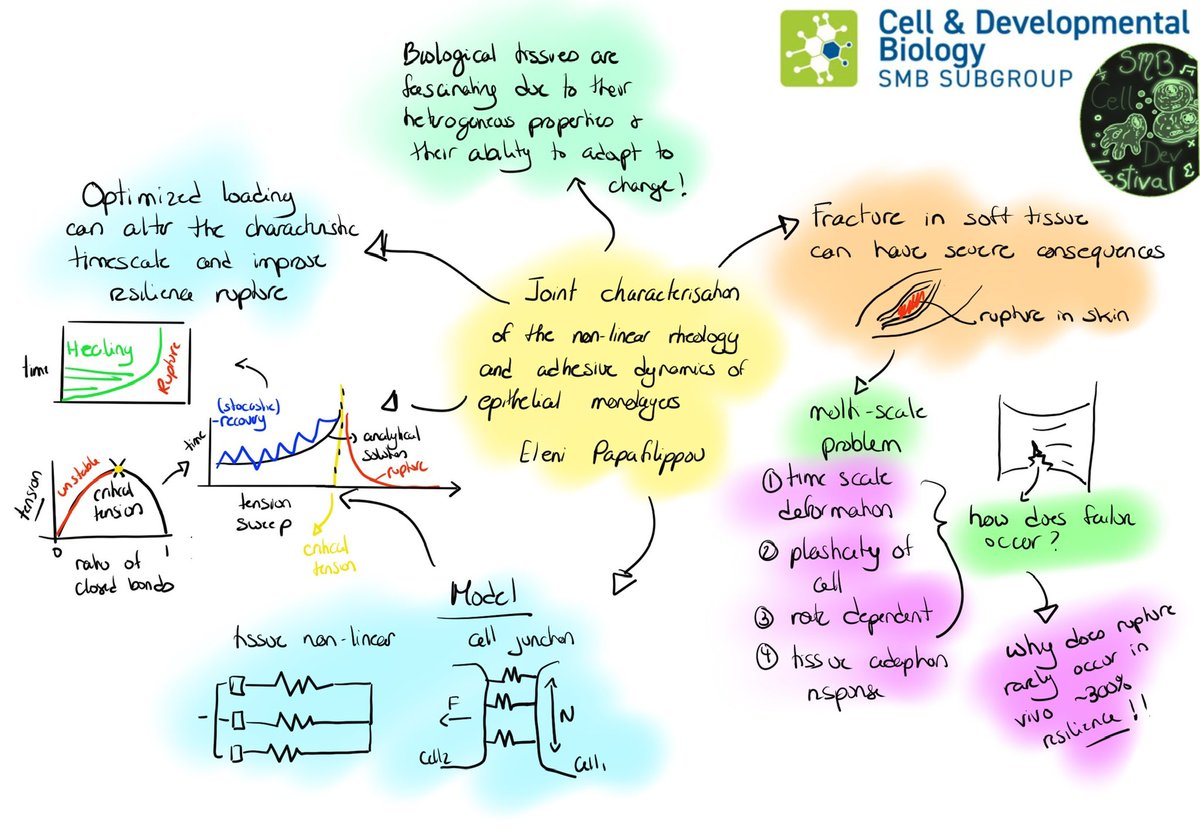 Cell & Developmental
Biology
SMB SUBGROUP
SMB
Cell
Dev
Festival
Biological tissues are
fascinating due to their
hetrogeneous properties &
their ability to adapt to
change!
Optimized loading
can alter the characteristic
timescale and improve
resilience rupture
Fracture in soft tissue
can have severe consequences
rupture in skin
Joint characterisation
of the non-linear rheology
and adhesive dynamics of
epithelial monolayers
Eleni Papafilippou
time
Healing
Rupture
(stocastic)
-recovery
time
analytical
solution
rupture
tension
sweep
critical
tension
tension
unstable
critical
tension
0
1
ratio of
closed bonds
multi-scale
problem
① time scale
deformation
② plasticity of
cell
③ rate dependent
④ tissue adaption
response
how does failure
occur?
why does rupture
rarely occur in
vivo ~300%
resilience!!
Model
tissue non-linear
cell junction
F
N
Cell2
Cell1